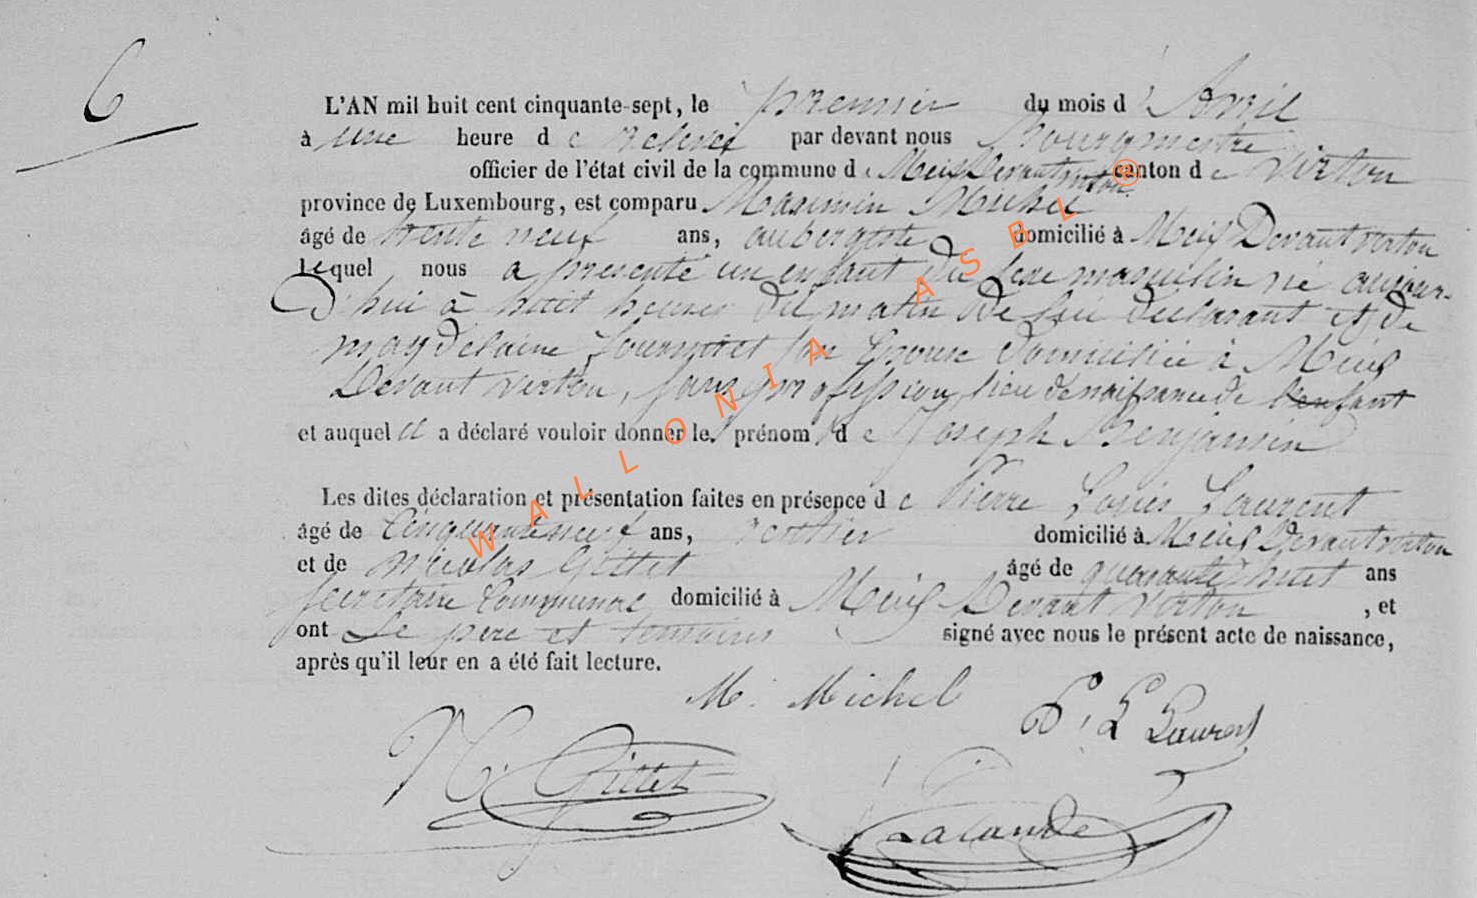 6
L'AN mil huit cent cinquante-sept, le premier du mois d'Avril
à une heure de relevé par devant nous Bourgmestre
officier de l'état civil de la commune de Meix Devant virton canton de Virton
province de Luxembourg, est comparu Maximin Michel
âgé de trente neuf ans, aubergiste domicilié à Meix Devant virton
lequel nous a présenté un enfant du sexe masculin né aujour-
D'hui à huit heures du matin de lui déclarant et de
magdelaine son Epouse domiciliée à Meix
Devant virton, sans profession, lieu de naissance de l'enfant
et auquel il a déclaré vouloir donner les prénoms de Joseph Benjamin
Les dites déclaration et présentation faites en présence de Pierre Louis Laurent
âgé de Cinquante neuf ans, rentier domicilié à Meix Devant virton
et de Nicolas Gillet âgé de quarante huit ans
secrétaire communal domicilié à Meix Devant virton, et
ont Le père et témoins signé avec nous le présent acte de naissance,
après qu'il leur en a été fait lecture.
M. Michel
P. L Laurent
N. Gillet
Lalande
WALLONIA ASBL ®